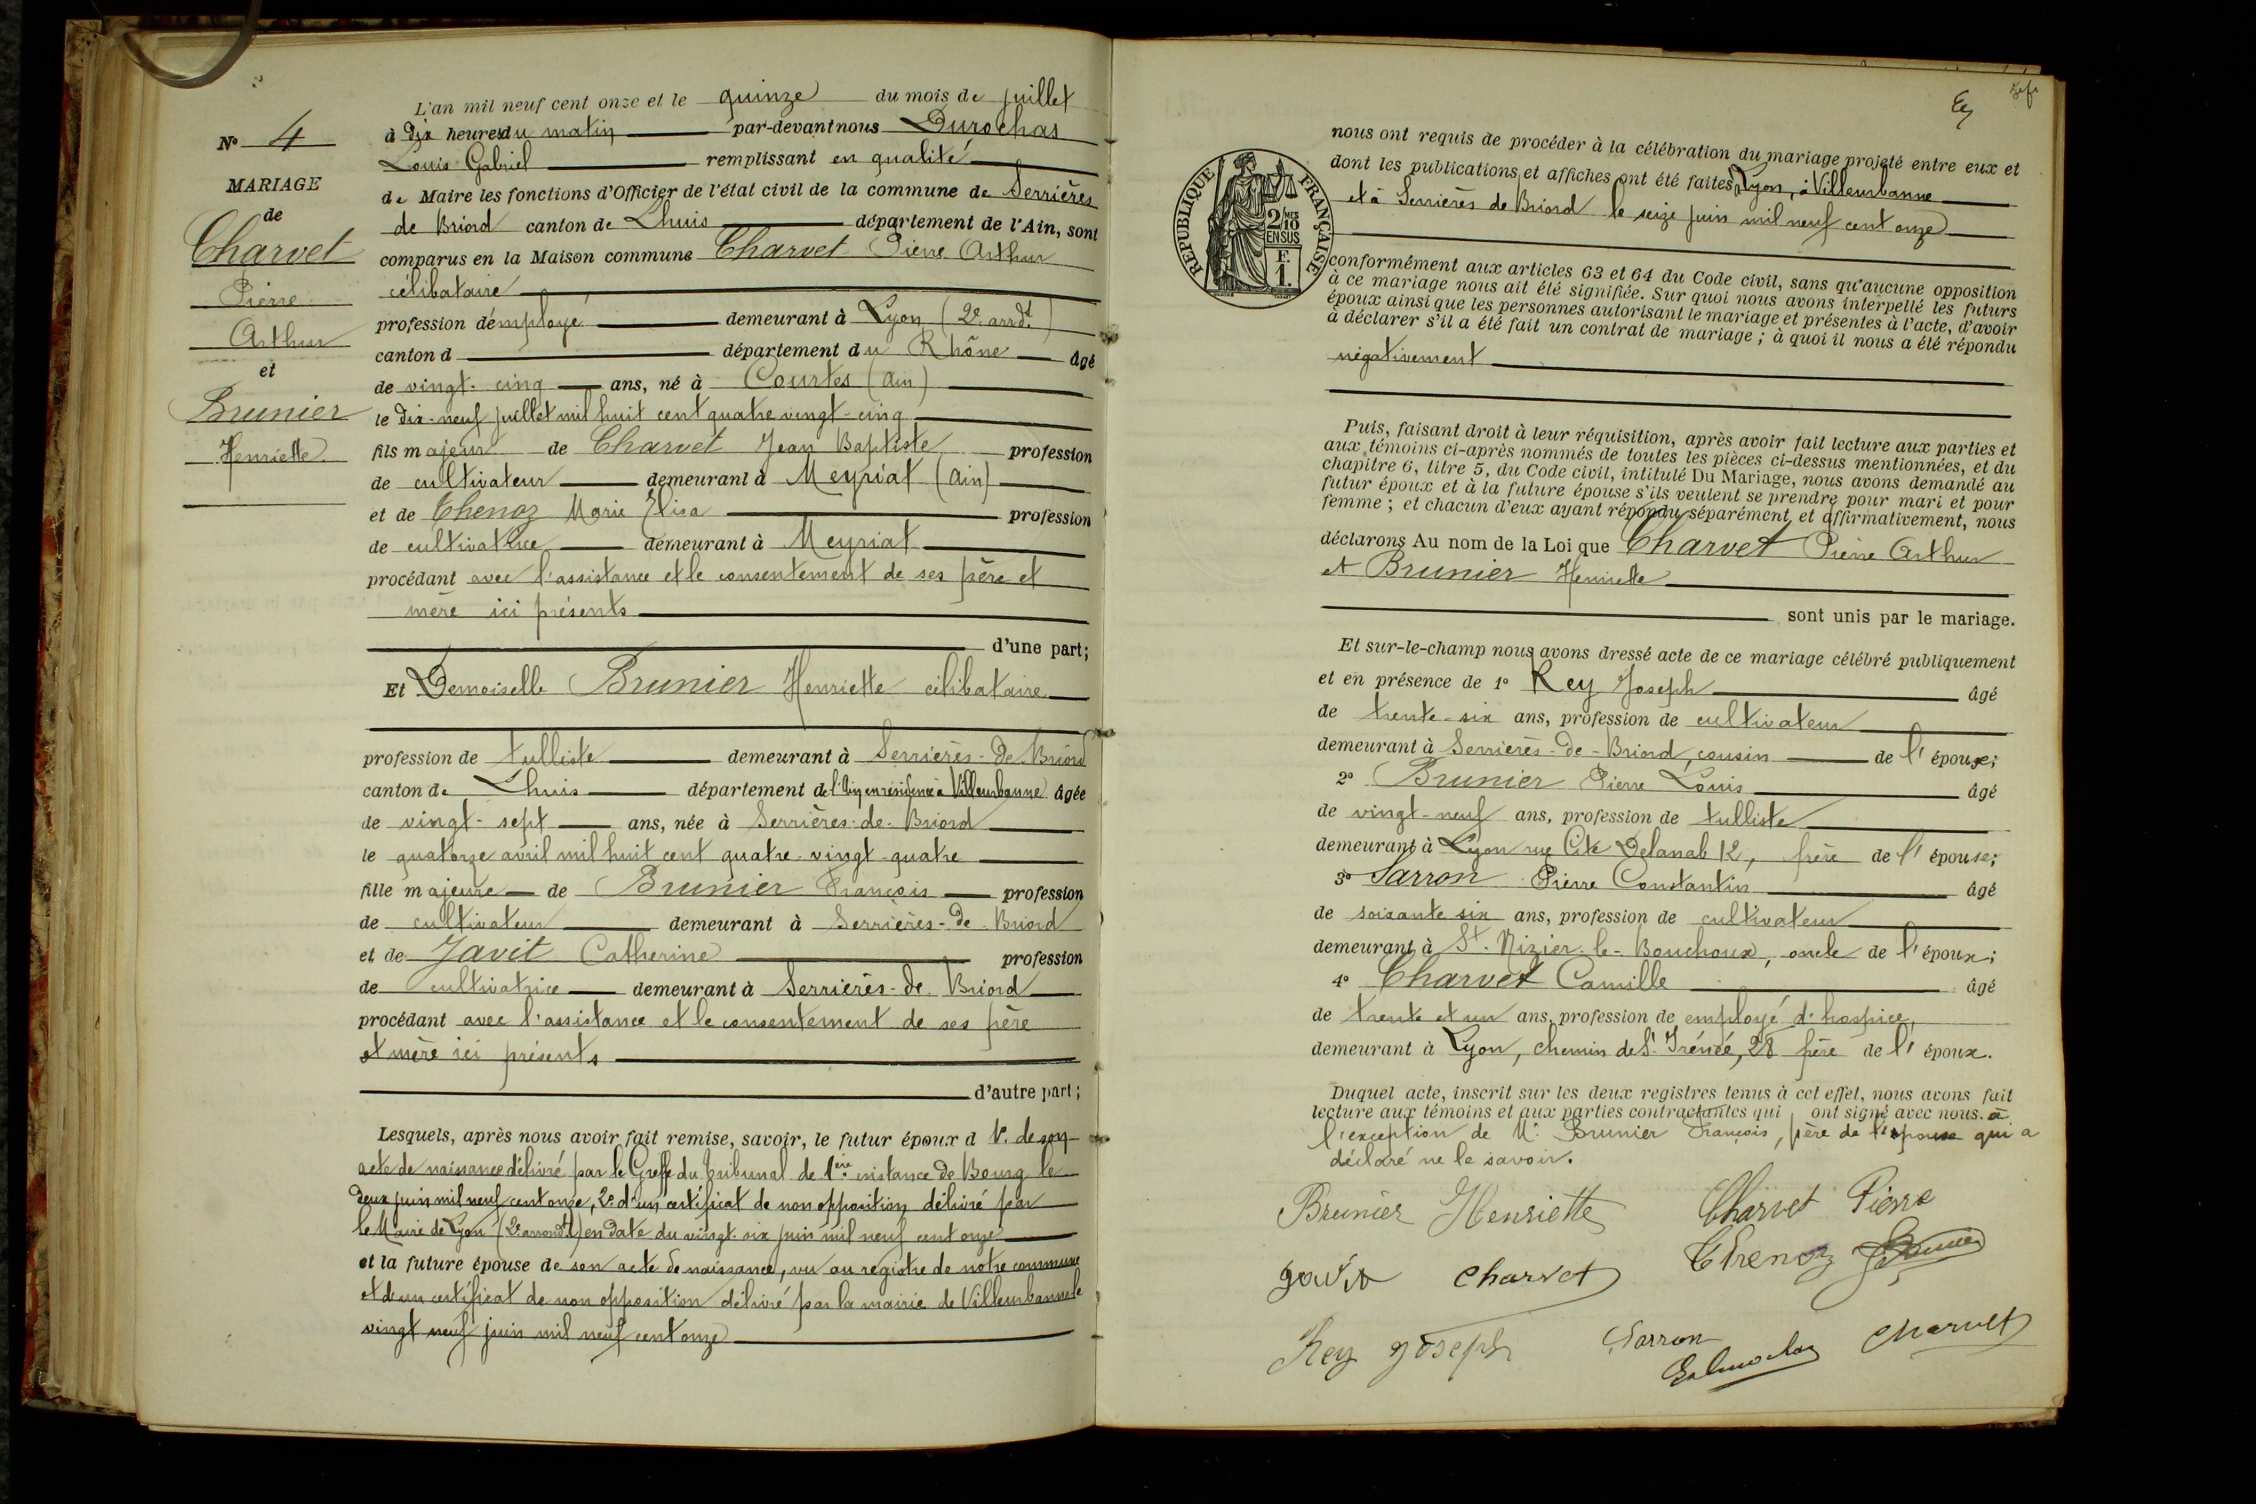 L'an mil neuf cent onze et le quinze du mois de juillet
à dix heures du matin par-devant nous Durochas
Louis Gabriel remplissant en qualité
de Maire les fonctions d'Officier de l'état civil de la commune de Serrières
de Briord canton de Lhuis département de l'Ain, sont
comparus en la Maison commune Charvet Pierre Arthur
célibataire
profession d'employé demeurant à Lyon (2e arrdt)
canton d département du Rhône âgé
de vingt-cinq ans, né à Courtes (Ain)
le dix-neuf juillet mil huit cent quatre vingt-cinq
fils majeur de Charvet Jean Baptiste profession
de cultivateur demeurant à Meyriat (Ain)
et de Chenoz Marie Elisa profession
de cultivatrice demeurant à Meyriat
procédant avec l'assistance et le consentement de ses père et
mère ici présents
d'une part;
Et Demoiselle Brunier Henriette célibataire
profession de tulliste demeurant à Serrières-de-Briord
canton de Lhuis département de l'Ain en résidence à Villeurbanne âgée
de vingt-sept ans, née à Serrières-de-Briord
le quatorze avril mil huit cent quatre-vingt-quatre
fille majeure de Brunier François profession
de cultivateur demeurant à Serrières-de-Briord
et de Javit Catherine profession
de cultivatrice demeurant à Serrières-de-Briord
procédant avec l'assistance et le consentement de ses père
et mère ici présents
d'autre part;
Lesquels, après nous avoir fait remise, savoir, le futur époux d 1° de son
acte de naissance délivré par le Greffe du Tribunal de 1ère instance de Bourg le
deux juin mil neuf cent onze, 2° d'un certificat de non opposition délivré par
le Maire de Lyon (2e arrondt) en date du vingt-six juin mil neuf cent onze
et la future épouse de son acte de naissance, vu au registre de notre commune
et d'un certificat de non opposition délivré par la mairie de Villeurbanne le
vingt neuf juin mil neuf cent onze
N° 4
MARIAGE
de
Charvet
Pierre
Arthur
et
Brunier
Henriette
RÉPUBLIQUE FRANÇAISE
2/10 MES
EN SUS
F.
1.
nous ont requis de procéder à la célébration du mariage projeté entre eux et
dont les publications et affiches ont été faites Lyon, à Villeurbanne
et à Serrières de Briord le seize juin mil neuf cent onze
conformément aux articles 63 et 64 du Code civil, sans qu'aucune opposition
à ce mariage nous ait été signifiée. Sur quoi nous avons interpellé les futurs
époux ainsi que les personnes autorisant le mariage et présentes à l'acte, d'avoir
à déclarer s'il a été fait un contrat de mariage; à quoi il nous a été répondu
négativement
Puis, faisant droit à leur réquisition, après avoir fait lecture aux parties et
aux témoins ci-après nommés de toutes les pièces ci-dessus mentionnées, et du
chapitre 6, titre 5, du Code civil, intitulé Du Mariage, nous avons demandé au
futur époux et à la future épouse s'ils veulent se prendre pour mari et pour
femme; et chacun d'eux ayant répondu séparément et affirmativement, nous
déclarons Au nom de la Loi que Charvet Pierre Arthur
et Brunier Henriette
sont unis par le mariage.
Et sur-le-champ nous avons dressé acte de ce mariage célébré publiquement
et en présence de 1° Rey Joseph âgé
de trente-six ans, profession de cultivateur
demeurant à Serrières-de-Briord, cousin de l'épouse;
2° Brunier Pierre Louis âgé
de vingt-neuf ans, profession de tulliste
demeurant à Lyon rue Cité 12, frère de l'épouse;
3° Sarron Pierre Constantin âgé
de soixante six ans, profession de cultivateur
demeurant à St-Nizier-le-Bouchoux, oncle de l'époux;
4° Charvet Camille âgé
de trente et un ans, profession de employé d'hospice,
demeurant à Lyon, chemin de St Irénée, 28 frère de l'époux.
Duquel acte, inscrit sur les deux registres tenus à cet effet, nous avons fait
lecture aux témoins et aux parties contractantes qui ont signé avec nous. à
l'exception de Mr Brunier François, père de l'épouse qui a
déclaré ne le savoir.
Brunier Henriette Charvet Pierre
Javit Charvet Chenoz Brunier
Rey Joseph Sarron Charvet